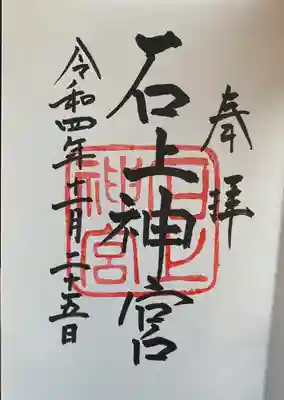 奉拝
石上神宮
石上神宮
令和四年十一月二十五日